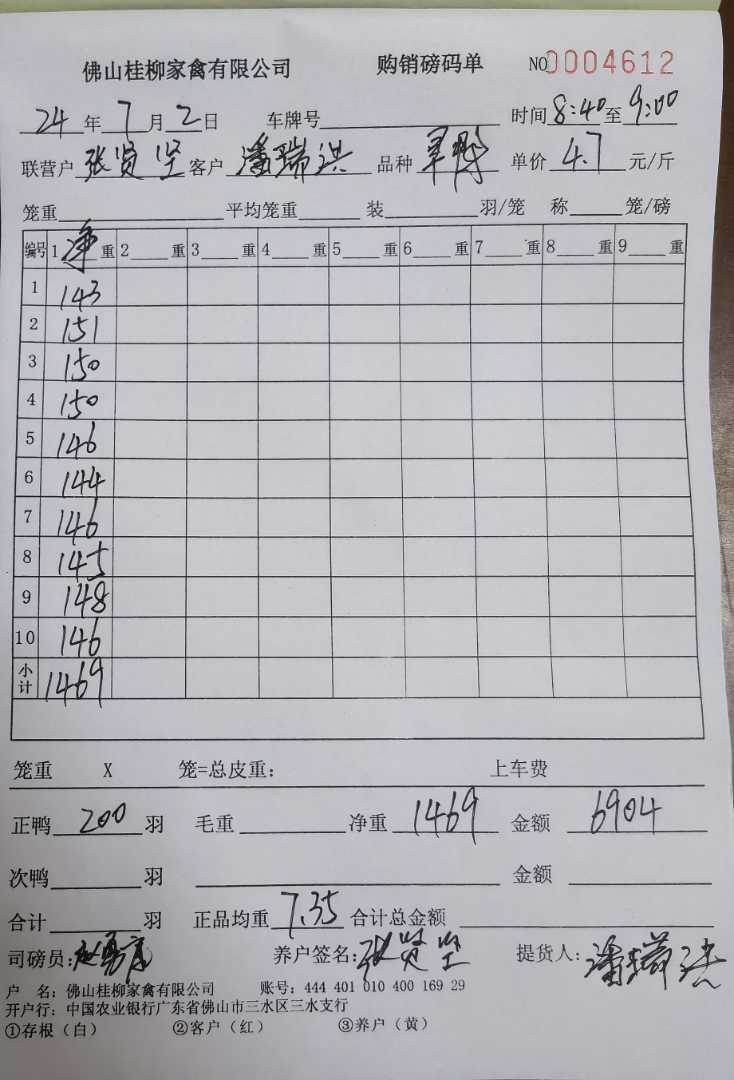 佛山桂柳家禽有限公司 购销磅码单 NO0004612
24年7月2日 车牌号 时间8:40至9:00
联营户张贤坚 客户潘瑞洪 品种 单价4.7元/斤
笼重 平均笼重 装 羽/笼 称 笼/磅
编号 1净重 2 重 3 重 4 重 5 重 6 重 7 重 8 重 9 重
1 143
2 151
3 150
4 150
5 146
6 144
7 146
8 145
9 148
10 146
小计 1469
笼重 X 笼=总皮重: 上车费
正鸭200羽 毛重 净重1469 金额6904
次鸭 羽 金额
合计 羽 正品均重7.35 合计总金额
司磅员: 养户签名:张贤坚 提货人:潘瑞洪
户 名: 佛山桂柳家禽有限公司 账号: 444 401 010 400 169 29
开户行: 中国农业银行广东省佛山市三水区三水支行
①存根(白) ②客户(红) ③养户(黄)